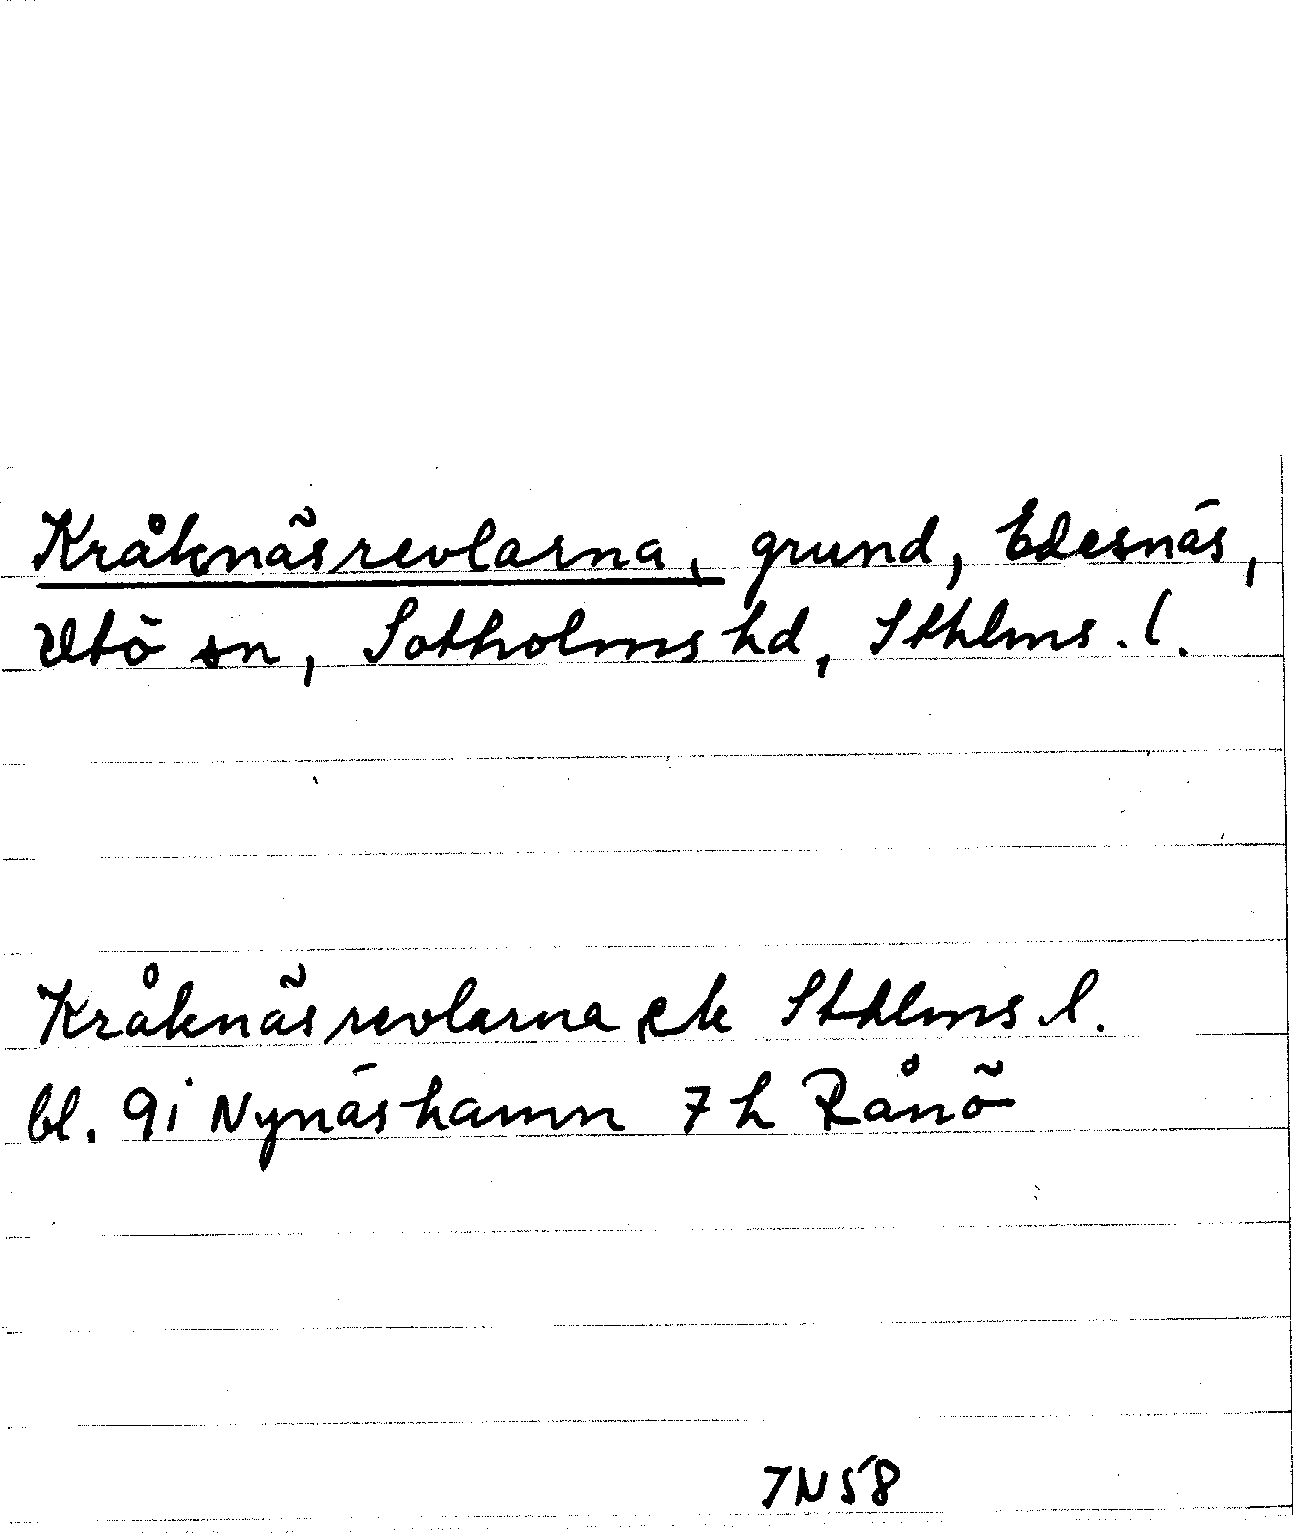 Kråknäsrevlarna, grund, Edesnäs,
Utö sn, Sotholms hd, Sthlms. l.
Kråknäsrevlarna ek Sthlms. l.
bl. 9i Nynäshamn 7 h Rånö
TN58